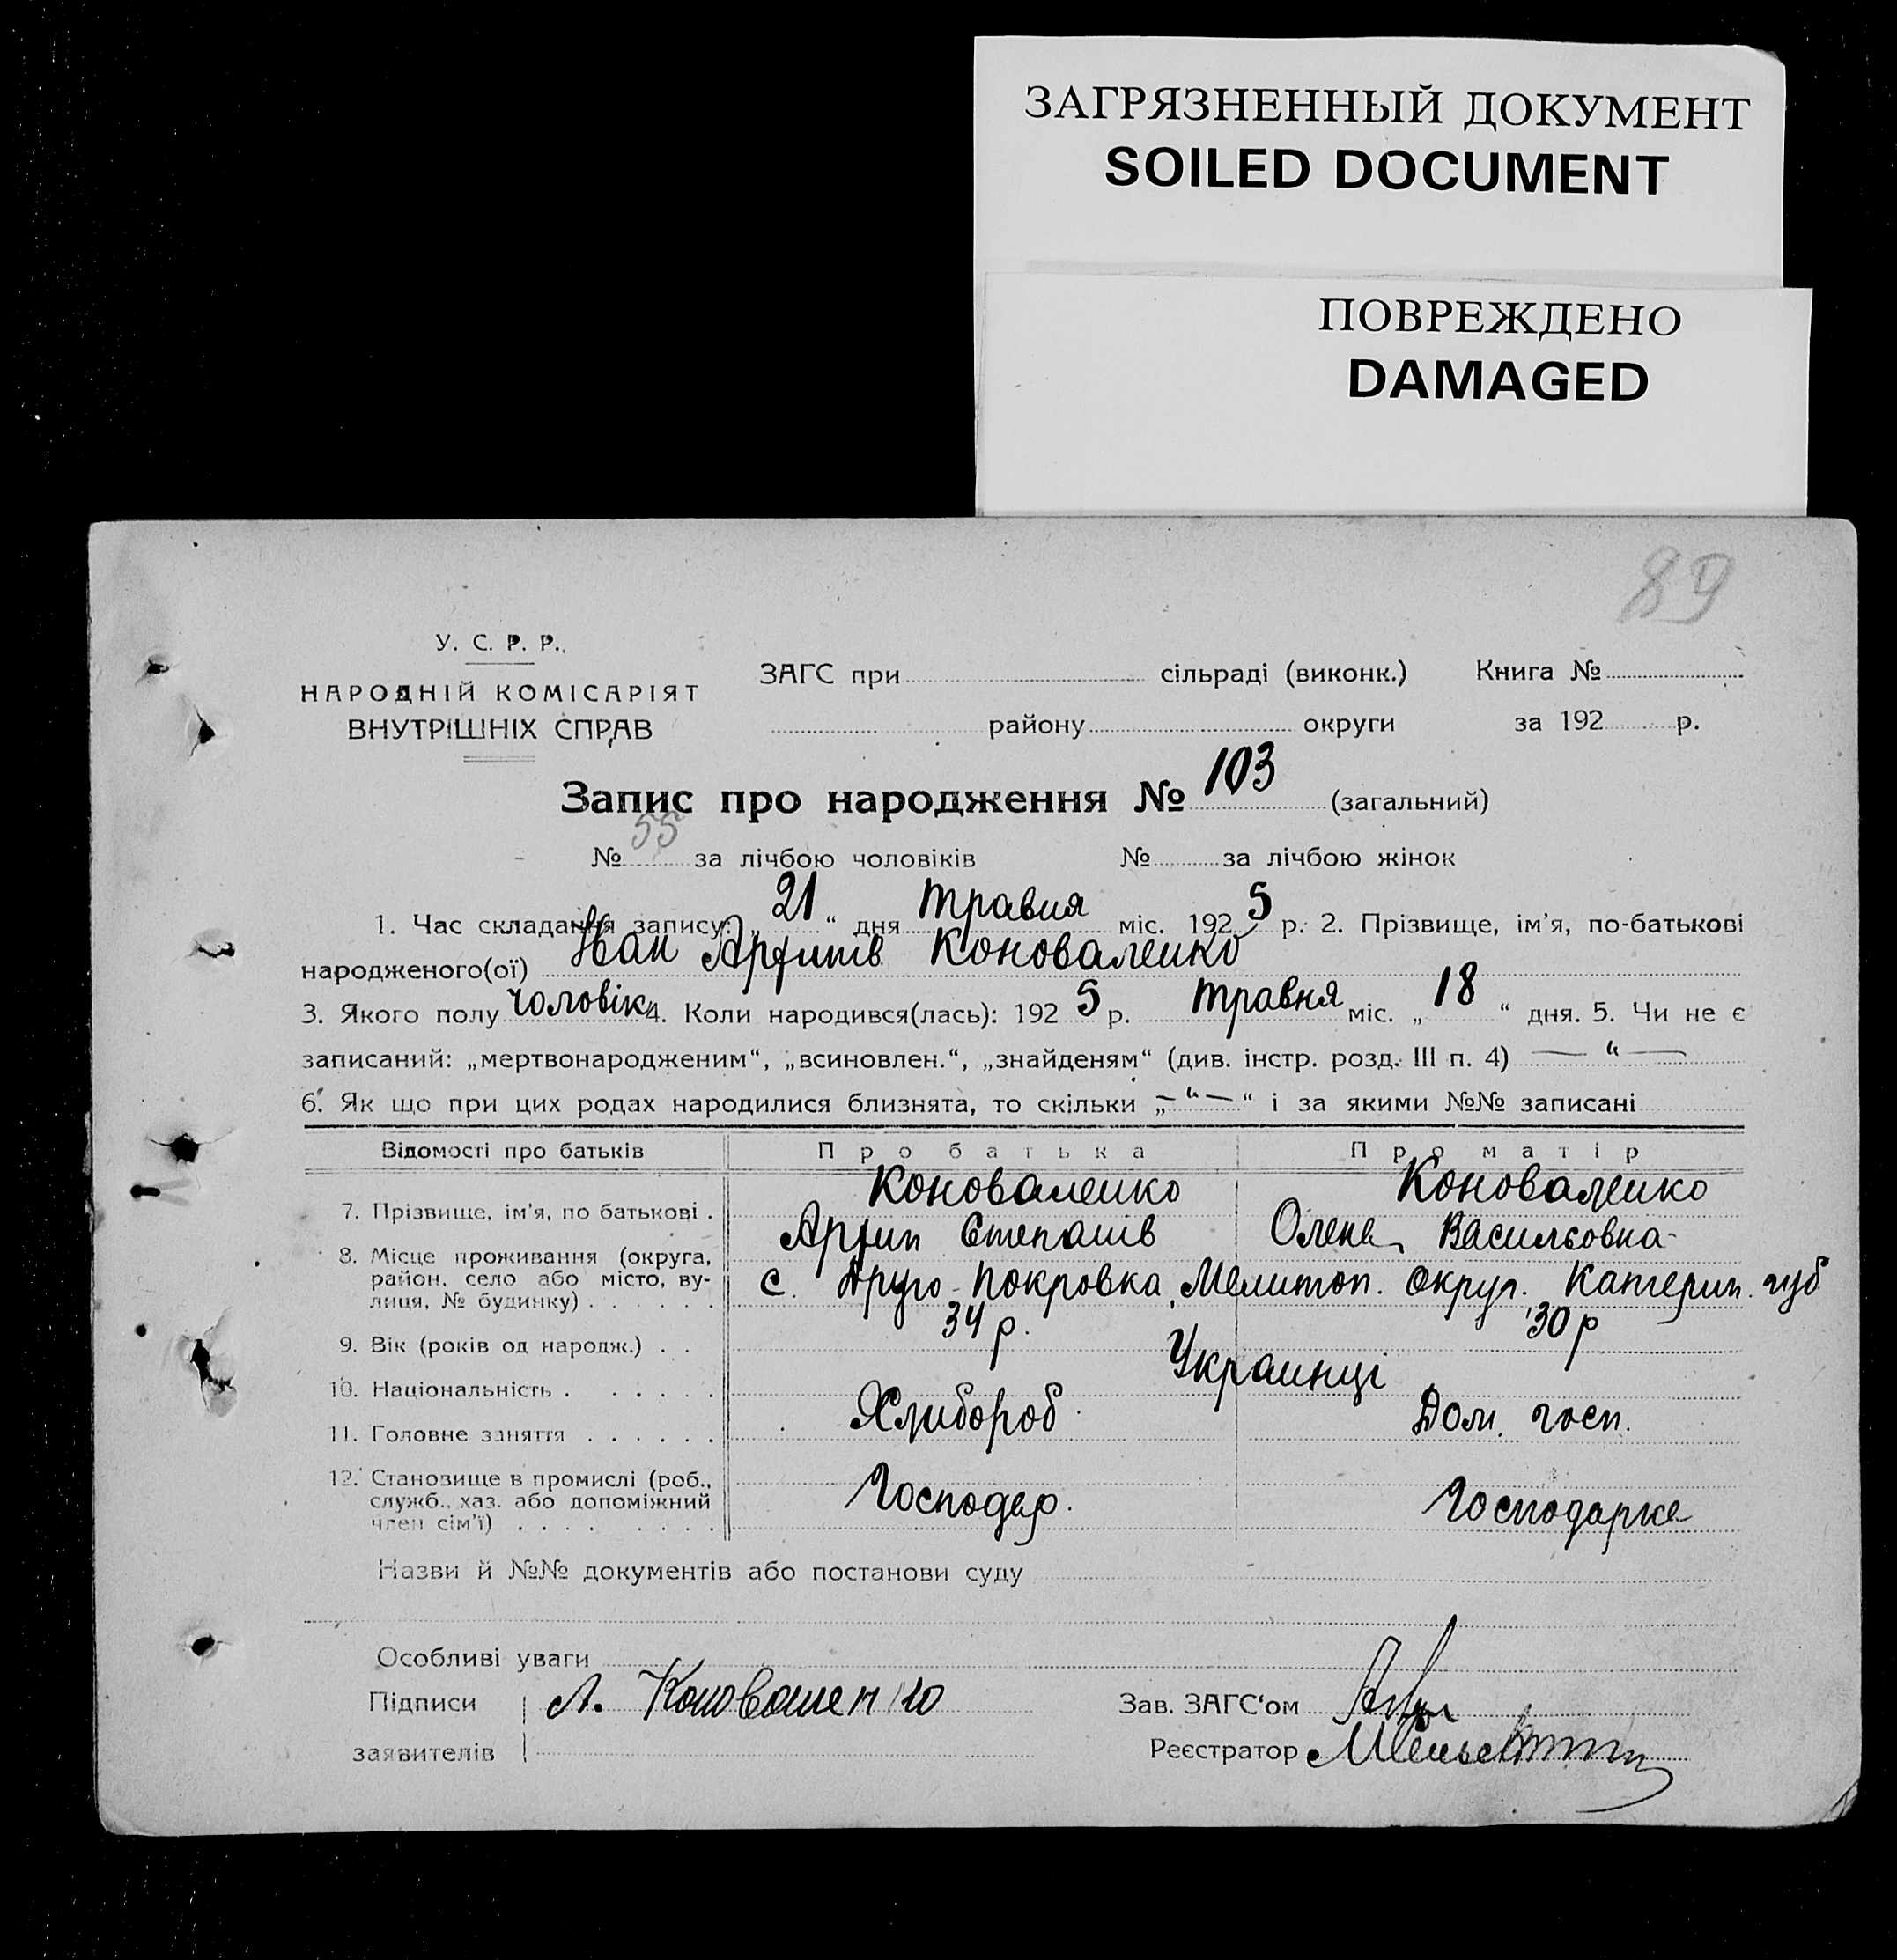 ЗАГРЯЗНЕННЫЙ ДОКУМЕНТ
SOILED DOCUMENT
ПОВРЕЖДЕНО
DAMAGED
89
У. С. Р. Р.
НАРОДНІЙ КОМІСАРІЯТ
ВНУТРІШНІХ СПРАВ
ЗАГС при сільраді (виконк.) Книга №
району округи за 192 р.
Запис про народження № 103 (загальний)
№ 55 за лічбою чоловіків № за лічбою жінок
1. Час складання запису: „ 21 “ дня травня міс. 1925 р. 2. Прізвище, ім'я, по-батькові
народженого(ої) Іван Архипів Коноваленко
3. Якого полу чоловік 4. Коли народився(лась): 1925 р. травня міс. „ 18 “ дня. 5. Чи не є
записаний: „мертвонародженим“, „всиновлен.“, „знайденям“ (див. інстр. розд. III п. 4) — “ —
6. Як що при цих родах народилися близнята, то скільки „ — “ — “ і за якими №№ записані
Відомості про батьків Про батька Про матір
Коноваленко Коноваленко
7. Прізвище, ім'я, по батькові . Архип Степанів Олена Васильовна
8. Місце проживання (округа,
район, село або місто, ву-
лиця, № будинку) . . . . . . с. Друго-Покровка, Мелитоп. округ. Катерин. губ
9. Вік (років од народж.) . . 34 р. 30 р
10. Національність . . . . . . Украинці
11. Головне заняття . . . . . . Хлибороб Дом. госп.
12. Становище в промислі (роб.,
служб., хаз. або допоміжний
член сім'ї) . . . . . . . . Господар. Господарка
Назви й №№ документів або постанови суду
Особливі уваги
Підписи А. Коноваленко Зав. ЗАГС'ом
заявителів Реєстратор